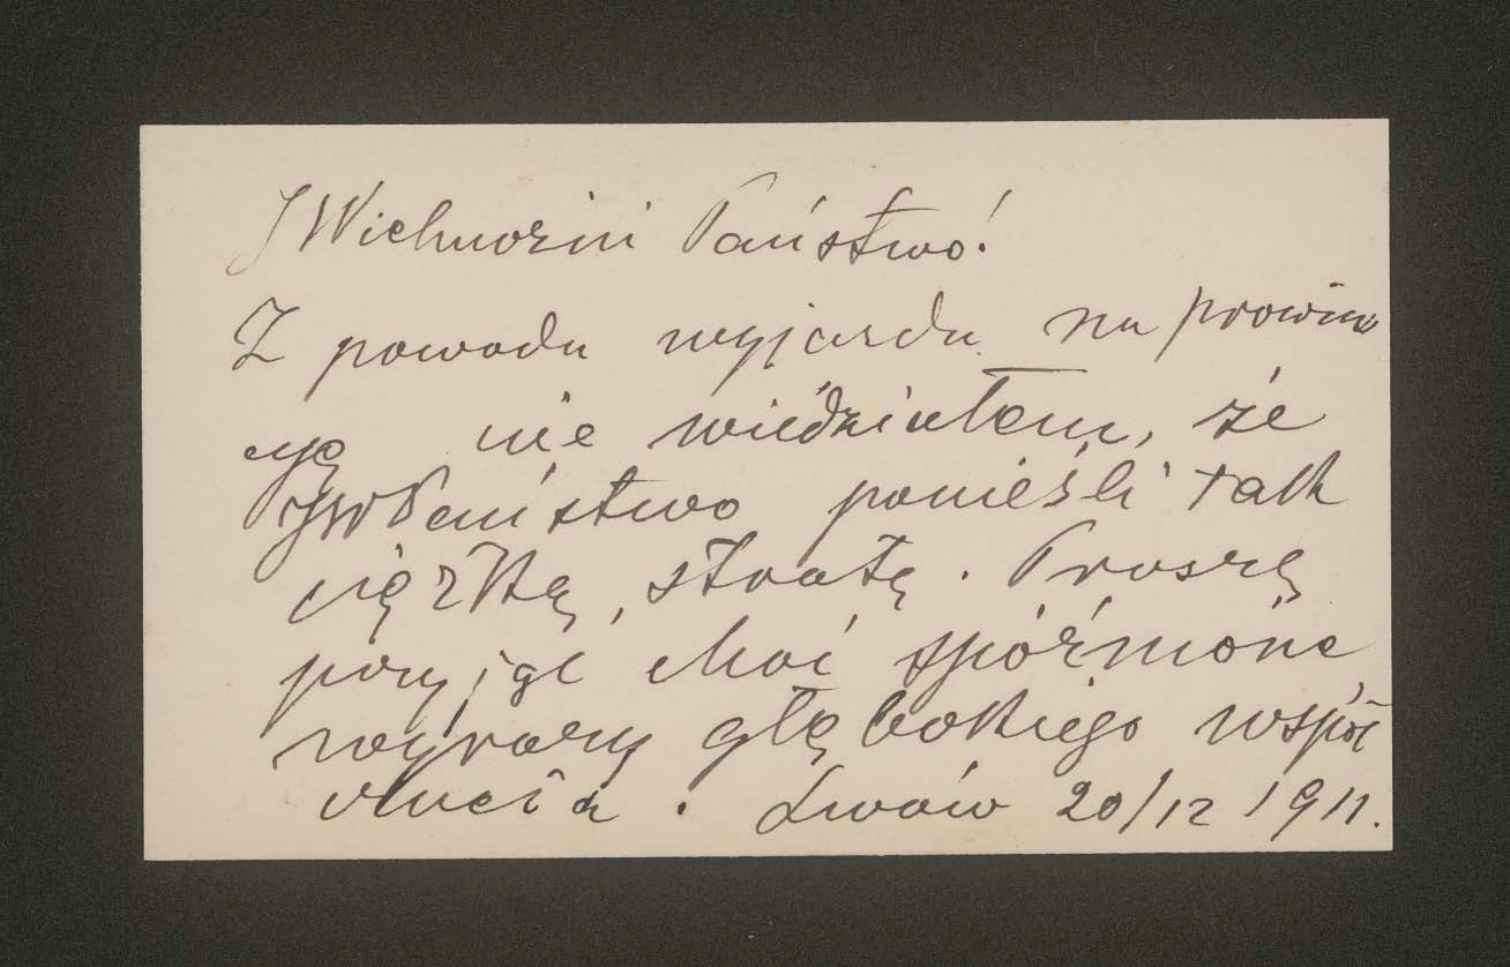 JWielmożni Państwo!
Z powodu wyjazdu na prowin
cyę nie wiedziałem, że
JWPaństwo ponieśli tak
ciężką stratę. Proszę
przyjąć choć spóźnione
wyrazy głębokiego współ
czucia. Lwów 20/12 1911.